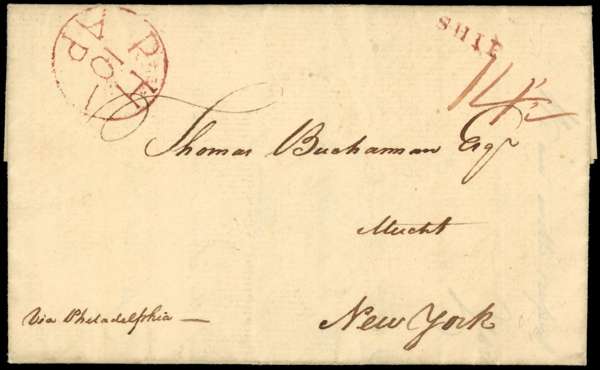 AP
10
PHI
SHIP
14½
Thomas Buchannan Esqr
Mercht
New York
Via Philadelphia —